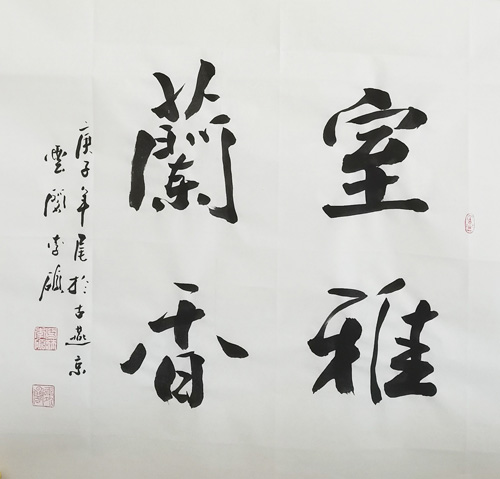 室雅
蘭香
庚子年尾於古燕京
雲閣李